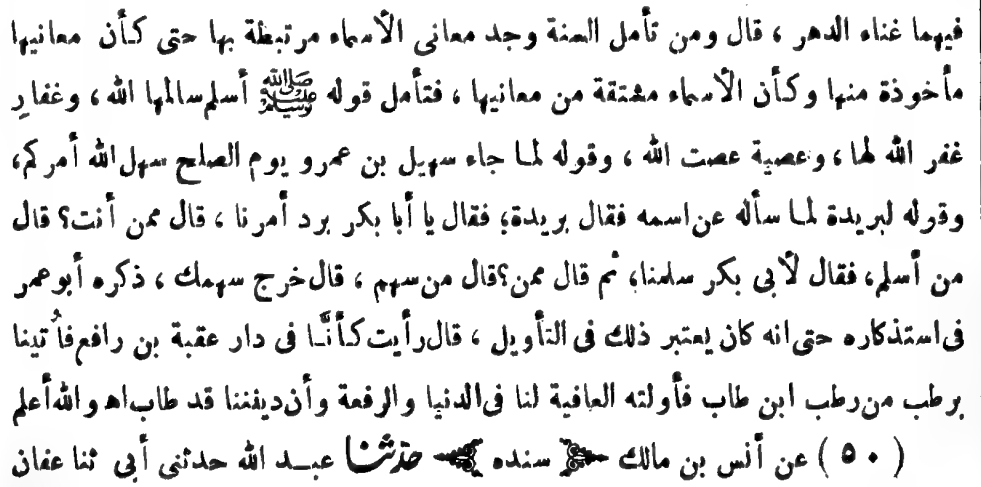 فيهما غناء الدهر ، قال ومن تأمل السنة وجد معانى الأسماء مرتبطة بها حتى كأن معانيها
مأخوذة منها وكأن الأسماء مشتقة من معانيها ، فتأمل قوله ﷺ أسلم سالمها الله ، وغفار
غفر الله لها ، وعصية عصت الله ، وقوله لما جاء سهيل بن عمرو يوم الصلح سهل الله أمركم،
وقوله لبريدة لما سأله عن اسمه فقال بريدة؛ فقال يا أبا بكر برد أمرنا ، قال ممن أنت؟ قال
من أسلم، فقال لأبى بكر سلمنا، ثم قال ممن؟ قال من سهم ، قال خرج سهمك ، ذكره أبو عمر
فى استذكاره حتى انه كان يعتبر ذلك فى التأويل ، قال رأيت كأنَّا فى دار عقبة بن رافع فأُتينا
برطب من رطب ابن طاب فأولته العافية لنا فى الدنيا والرفعة وأن ديننا قد طاب اه والله أعلم
(٥٠) عن أنس بن مالك سنده حدثنا عبد الله حدثنى أبى ثنا عفان